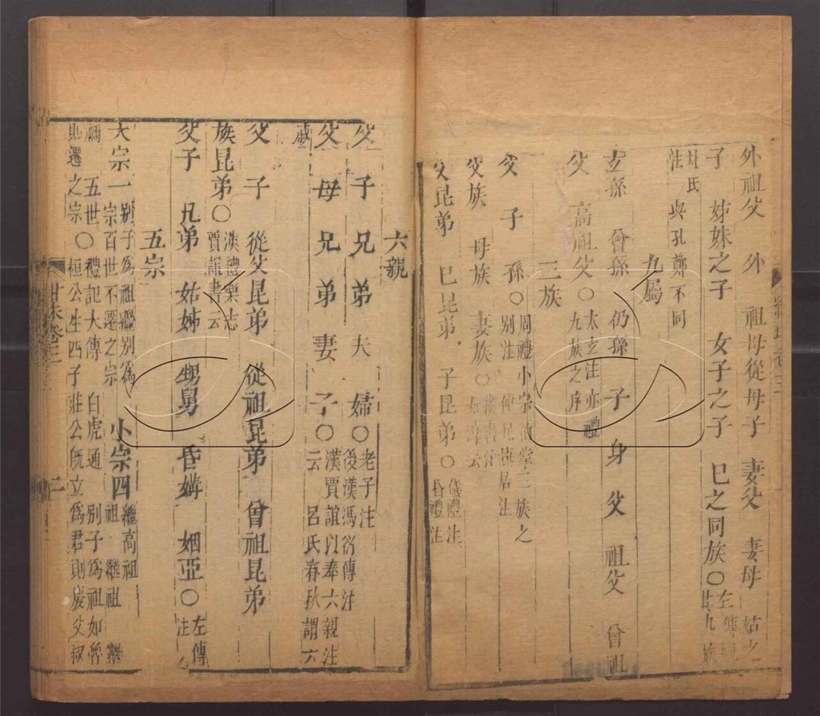 外祖父 外祖母從母子 妻父 妻母 姑之
子 姊妹之子 女子之子 巳之同族〇左傳
杜氏
注 與孔鄭不同
九屬
玄孫 曾孫 仍孫 子 身 父 祖父 曾祖
父 高祖父〇太玄注亦禮
九族之序
三族
父 子 孫〇周禮小宗伯掌三族之
別注
父族 母族 妻族〇
父昆弟 巳昆弟 子昆弟〇儀禮注
昏禮注
六親
父 子 兄 弟 夫 婦〇老子注
後漢馮衍傳注
父 母 兄 弟 妻 子〇漢賈誼以奉六親注
云 呂氏春秋謂六
戚
父 子 從父昆弟 從祖昆弟 曾祖昆弟
族昆弟〇漢禮樂志
賈誼書云
父子 兄弟 姑姊 甥舅 昏媾 姻亞〇左傳
注
五宗
大宗一別子為祖繼別為
宗百世不遷之宗
小宗四繼高祖
祖 繼祖 繼
禰 五世〇禮記大傳 白虎通 別子為祖如魯
則遷之宗 桓公生四子莊公既立為君則慶父叔